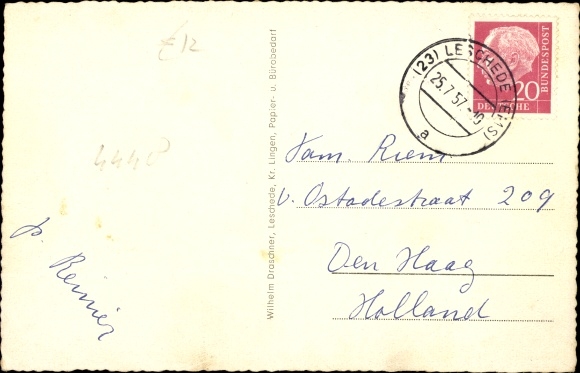 £ 12
4440
p. Reinier
Wilhelm Draschner, Leschede, Kr. Lingen, Papier- u. Bürobedarf
(23) LESCHEDE (EMS)
25.7.57.-10
a
20
DEUTSCHE
BUNDESPOST
Fam. Riem
v. Ostadestraat 209
Den Haag
Holland